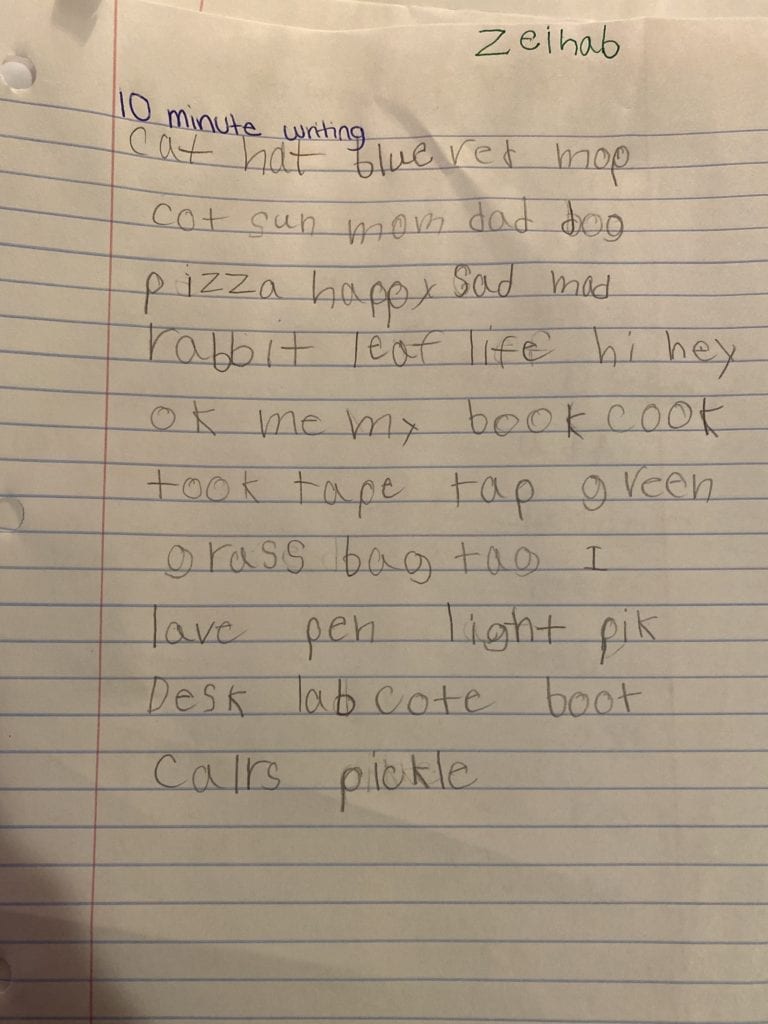 Zeihab
10 minute writing
cat hat blue red mop
cot sun mom dad dog
pizza happy Sad mad
rabbit leaf life hi hey
ok me my book cook
took tape tap green
grass bag tag I
lave pen light pik
Desk lab cote boot
Calrs pickle